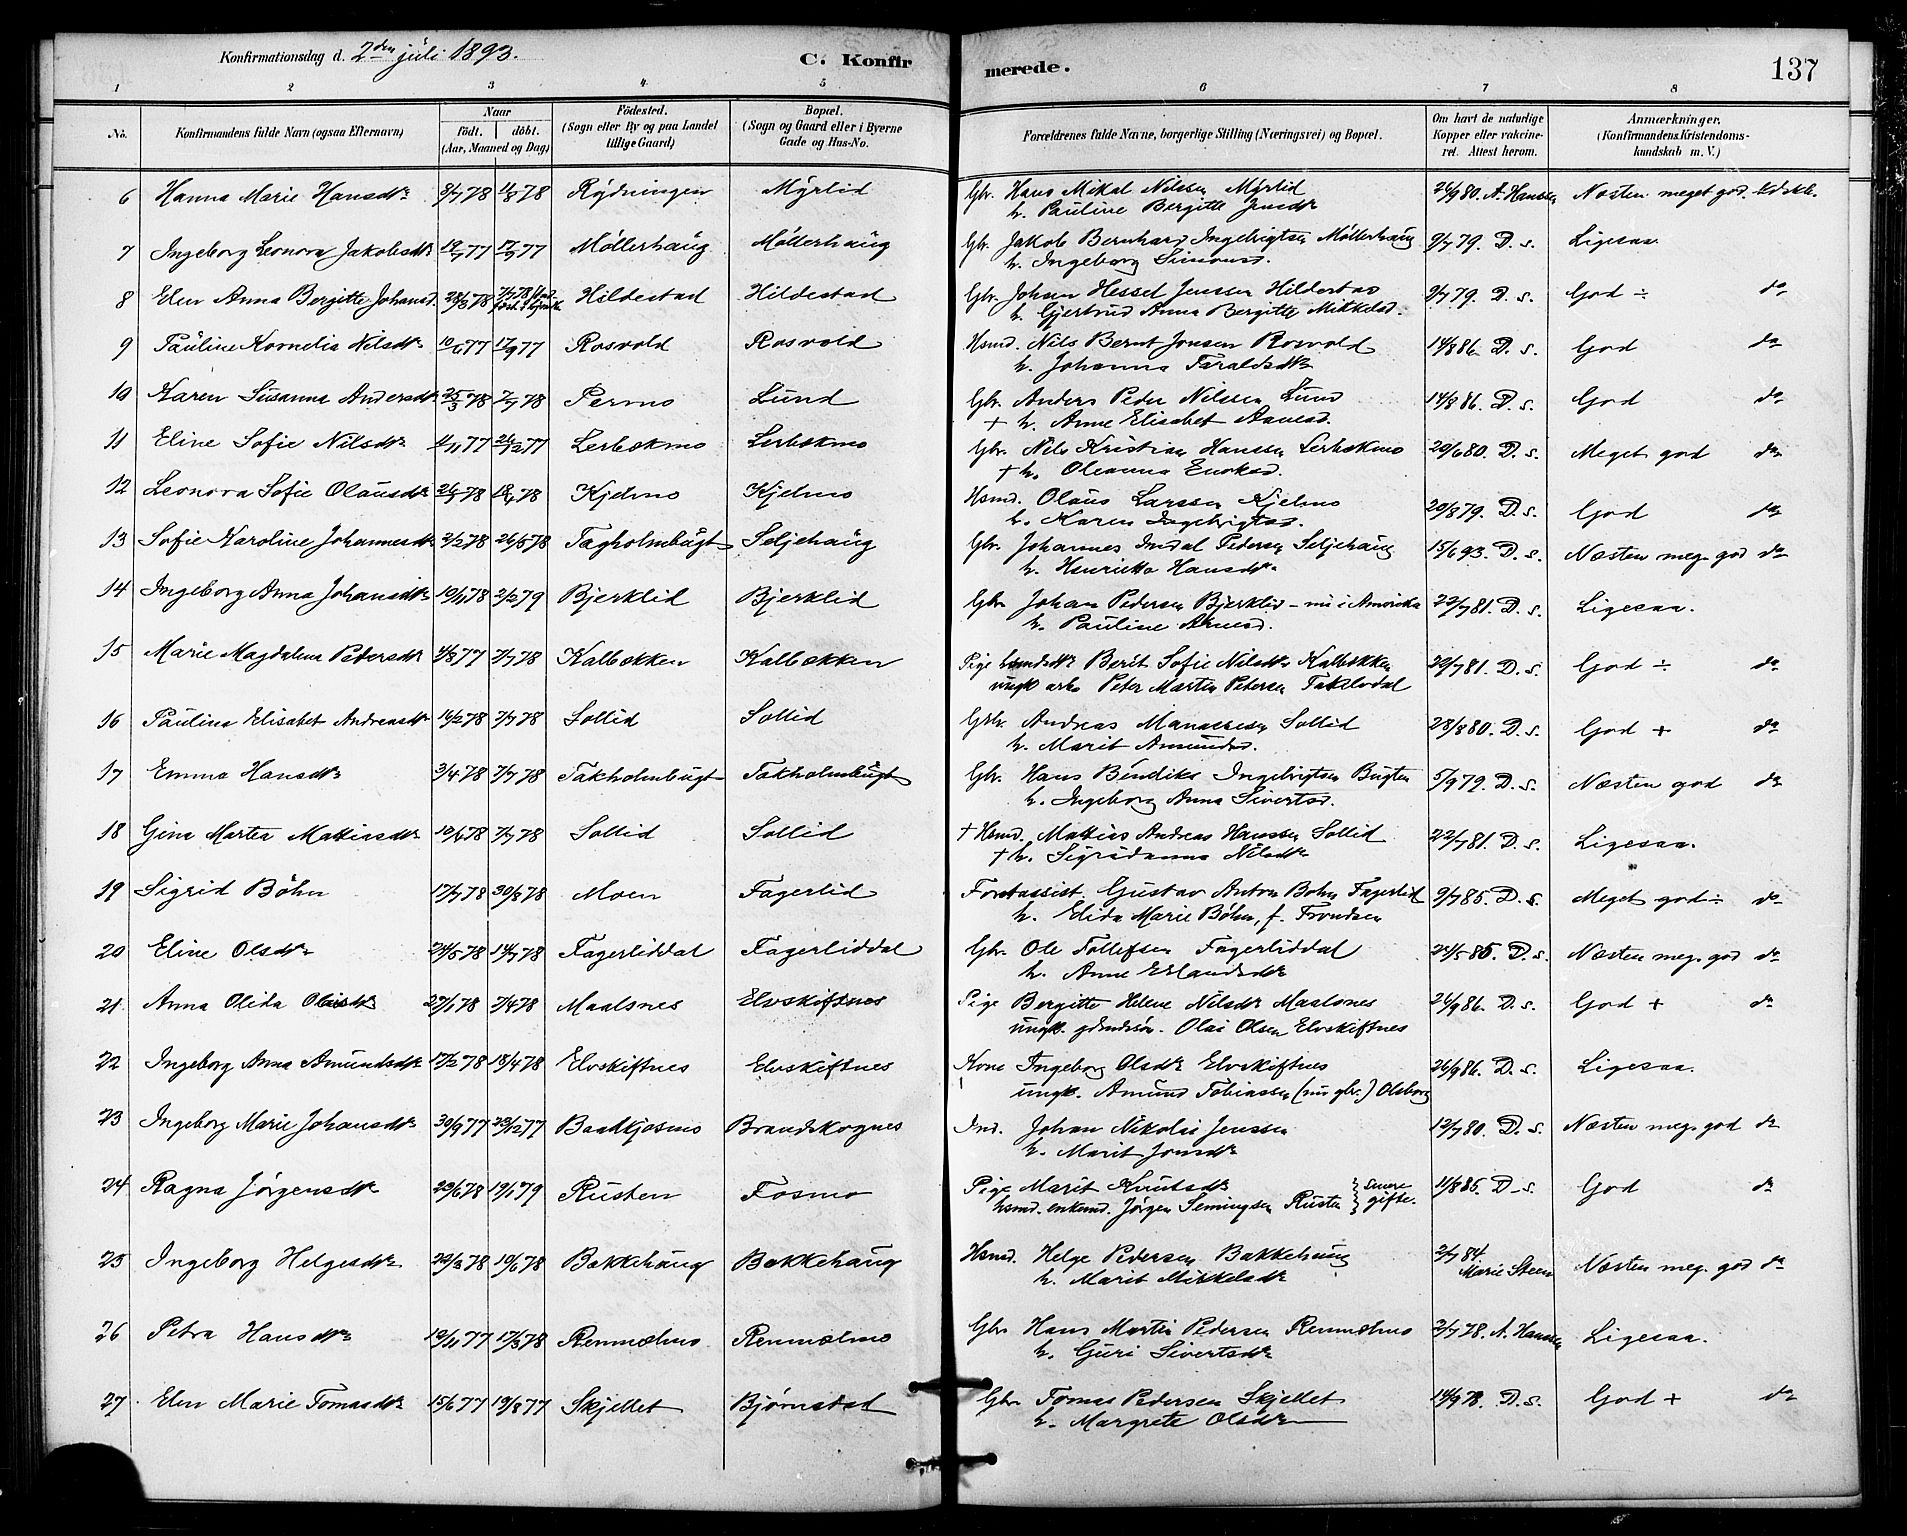 Konfirmationsdag d. 2den juli 1893.
C. Konfirmerede.
137
1 2 3 4 5 6 7 8
No. Konfirmandens fulde Navn (ogsaa Efternavn) Naar født. døbt. (Aar, Maaned og Dag) Fødested. (Sogn eller By og paa Landet tillige Gaard) Bopæl. (Sogn og Gaard eller i Byerne Gade og Hus-No. Forældrenes fulde Navne, borgerlige Stilling (Næringsvei) og Bopæl. Om havt de naturlige Kopper eller vakcineret. Attest herom. Anmærkninger. (Konfirmandens Kristendomskundskab m. V.)
6 Hanna Marie Hansdtr 3/4 78 11/8 78 Rydningen Myrlid Gbr. Hans Mikal Nilssen Myrlid 26/9 80. A. Hanssen Næsten meget god
h. Pauline Bergitte Jensdtr
7 Ingeborg Leonora Jakobsdtr 19/5 77 17/9 77 Møllerhaug Møllerhaug Gbr. Jakob Bernhard Ingebrigtsen Møllerhaug 9/7 79. D. s. Ligesaa
h. Ingeborg Simonsd.
8 Elen Anna Bergitte Johansd. 28/3 78 7/7 78 Hildestad Hildestad Gbr. Johan Hessel Jenssen Hildestad 9/7 79. D. s. God ÷ do
h. Gjertrud Anna Bergitte Mikkelsd.
9 Pauline Kornelia Nilsdtr 10/6 77 17/9 77 Rosvold Rosvold Hsmd. Nils Bernt Jonsen Rosvold 14/8 86. D. s. God do
h. Johanna Taraldsdtr
10 Karen Susanna Andersdtr 25/3 78 7/7 78 Permo Lund Gbr. Anders Peder Nilssen Lund 14/8 86. D. s. God do
+ h. Anne Elisabet Aanesd.
11 Eline Sofie Nilsdtr 4/11 77 26/12 77 Lerbækmo Lerbekmo Gbr. Nils Kristian Hanssen Lerbækmo 20/6 80. D. s. Meget god do
+ h. Oleanna Enoksd.
12 Leonora Sofie Olausdtr Kjelmo Kjelmo Hsmd. Olaus Larssen Kjelmo 20/8 79. D. s. God do
h. Karen Ingebrigtsd.
13 Sofie Karoline Johannesdtr 2/2 78 26/5 78 Tagholmbugt Seljehaug Gbr. Johannes Indal Pedersen Seljehaug 15/6 93. D. s. Næsten meg. god do
h. Henrikka Hansdtr
14 Ingeborg Anna Johansdtr 10/11 78 2/2 79 Bjerklid Bjerklid Gbr. Johan Pedersen Bjerklid - nu i Amerika 22/7 81. D. s. Ligesaa.
h. Pauline Arnesd.
15 Marie Magdalena Pedersdtr 4/8 77 7/7 78 Kalbækken Kalbækken Pige Berit Sofie Nilsdtr Kalbækken 22/7 81. D. s. God ÷ do
ungk. arb. Peter Martin Petersen Takelvdal
16 Paulina Elisabet Andreasdtr 16/2 78 7/7 78 Sollid Sollid Gbr. Andreas Manassesen Sollid 28/8 80. D. s. God + do
h. Marit Amundsd.
17 Emma Hansdtr 3/4 78 7/7 78 Takholmbugt Takholmbugt Gbr. Hans Bendiks Ingebrigtsen Bugten 5/9 79. D. s. Næsten god do
h. Ingeborg Anna Sivertsd.
18 Gina Martea Matiasdtr 10/6 78 7/7 78 Sollid Sollid + Hsmd. Matias Andreas Hanssen Sollid 22/7 81. D. s. Ligesaa.
+ h. Sigridanna Nilsdtr
19 Sigrid Bøhn 17/7 78 30/8 78 Moen Fagerlid Forstassist. Gustav Anton Bøhn Fagerlid 9/7 85. D. s. Meget god ÷ do
h. Elida Marie Bøhn, f. Trondsen
20 Eline Olsdtr 24/5 78 14/7 78 Fagerliddal Fagerliddal Gbr. Ole Tollefsen Fagerliddal 24/5 85. D. s. Næsten meg. god do
h. Anne Erlandsdtr
21 Anna Olida Olaisdtr 27/1 78 7/4 78 Maalsnes Elvskiftnes Pige Bergitte Helene Nilsdtr Maalsnes 26/9 86. D. s. God + do
ungk. gbrs. Olai Olsen Elvskiftnes
22 Ingeborg Anna Amundsdtr 17/2 78 18/4 78 Elvskiftnes Elvskiftnes Kone Ingeborg Olsdtr Elvskiftnes 26/9 86. D. s. Ligesaa.
ungk. Amund Tobiassen (nu gbr.) Olsborg
23 Ingeborg Marie Johansdtr 30/9 77 23/12 77 Baadkjosmo Brandskognes Ind. Johan Nikolai Jenssen 12/7 80. D. s. Næsten meg. god do
h. Marit Jonsdtr
24 Ragna Jørgensdtr 29/6 78 19/1 79 Rusten Fosmo Pige Marit Knutsdtr } senere 11/8 85. D. s. God do
hsmd. enkemd. Jørgen Semingsen Rusten } gifte.
25 Ingeborg Helgesdtr 22/3 78 10/6 78 Bakkehaug Bakkehaug Hsmd. Helge Pedersen Bakkehaug 2/7 84. Marie Steen Næsten meg. god do
h. Marit Mikkelsdtr
26 Petra Hansdtr 19/11 77 17/3 78 Renmælmo Renmælmo Gbr. Hans Martin Pedersen Renmælmo 2/7 78. A. Hanssen Ligesaa.
h. Guri Sivertsdtr
27 Elen Marie Tomasdtr 15/6 77 19/8 77 Skjellet Bjørnstad Gbr. Tomas Pedersen Skjellet 14/9 78. D. s. God + do
h. Margrete Olsdtr